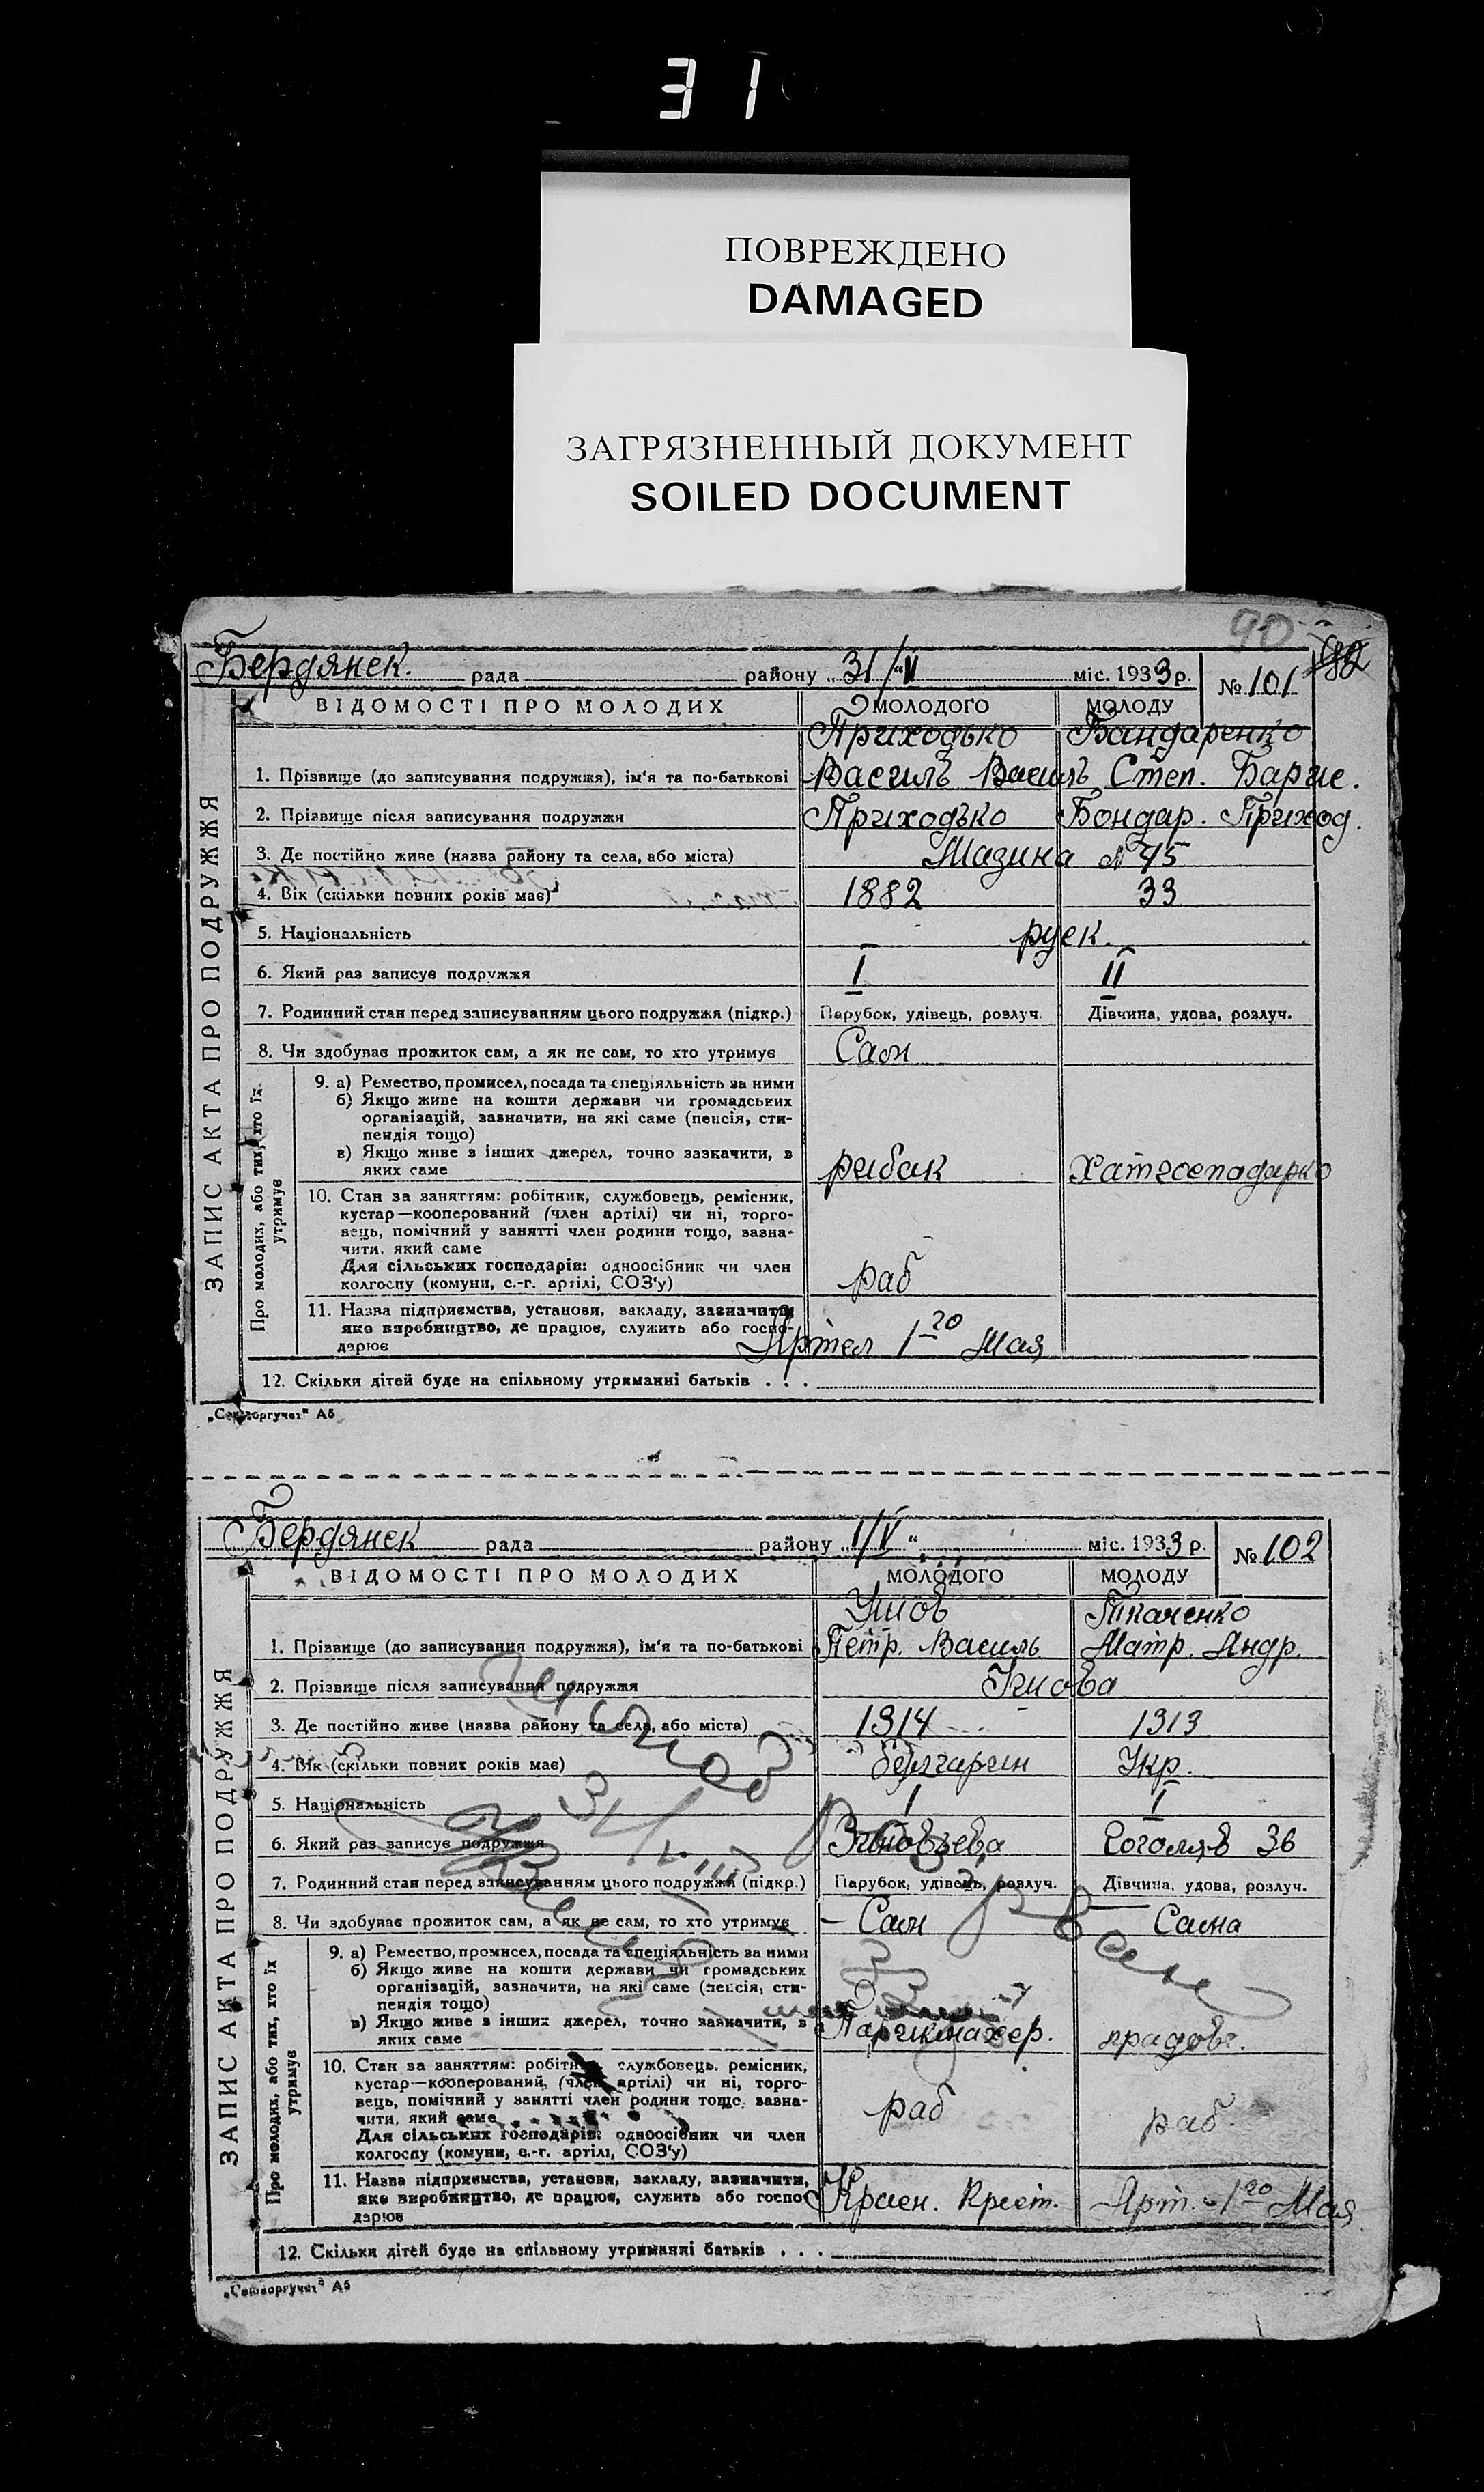 31
ПОВРЕЖДЕНО
DAMAGED
ЗАГРЯЗНЕННЫЙ ДОКУМЕНТ
SOILED DOCUMENT
90
Бердянск. рада району „31/V“ міс. 1933 р. № 101
ЗАПИС АКТА ПРО ПОДРУЖЖЯ
ВІДОМОСТІ ПРО МОЛОДИХ МОЛОДОГО МОЛОДУ
Приходько Бандаренко
1. Прізвище (до записування подружжя), ім'я та по-батькові Василь Василь Степ.
2. Прізвище після записування подружжя Приходько Бондар. Приход.
3. Де постійно живе (назва району та села, або міста) Мазина № 45
4. Вік (скільки повних років має) 1882 33
5. Національність руск.
6. Який раз записує подружжя I II
7. Родинний стан перед записуванням цього подружжя (підкр.) Парубок, удівець, розлуч. Дівчина, удова, розлуч.
8. Чи здобуває прожиток сам, а як не сам, то хто утримує Сам
Про молодих, або тих, хто їх утримує
9. а) Ремество, промисел, посада та спеціяльність за ними
б) Якщо живе на кошти держави чи громадських
організацій, зазначити, на які саме (пенсія, сти-
пендія тощо)
в) Якщо живе з інших джерел, точно зазначити, з
яких саме рибак Хатгосподарко
10. Стан за заняттям: робітник, службовець, ремісник,
кустар—кооперований (член артілі) чи ні, торго-
вець, помічний у занятті член родини тощо, зазна-
чити, який саме
Для сільських господарів: одноосібник чи член
колгоспу (комуни, с.-г. артілі, СОЗ'у) раб
11. Назва підприємства, установи, закладу, зазначити,
яке виробництво, де працює, служить або госпо-
дарює Артел 1го Мая
12. Скільки дітей буде на спільному утриманні батьків . . .
„Союзоргучет“ А5
Бердянск рада району „1/V“ міс. 1933 р. № 102
ЗАПИС АКТА ПРО ПОДРУЖЖЯ
ВІДОМОСТІ ПРО МОЛОДИХ МОЛОДОГО МОЛОДУ
Ткаченко
1. Прізвище (до записування подружжя), ім'я та по-батькові Петр. Василь Матр. Андр.
2. Прізвище після записування подружжя
3. Де постійно живе (назва району та села, або міста) 1914 1913
4. Вік (скільки повних років має) болгарин Укр.
5. Національність I I
6. Який раз записує подружжя Зиновьева Гоголяв 36
7. Родинний стан перед записуванням цього подружжя (підкр.) Парубок, удівець, розлуч. Дівчина, удова, розлуч.
8. Чи здобуває прожиток сам, а як не сам, то хто утримує — Сам Сама
Про молодих, або тих, хто їх утримує
9. а) Ремество, промисел, посада та спеціяльність за ними
б) Якщо живе на кошти держави чи громадських
організацій, зазначити, на які саме (пенсія, сти-
пендія тощо)
в) Якщо живе з інших джерел, точно зазначити, з
яких саме Парикмахер.
10. Стан за заняттям: робітник, службовець, ремісник,
кустар—кооперований, (член артілі) чи ні, торго-
вець, помічний у занятті член родини тощо, зазна-
чити, який саме
Для сільських господарів: одноосібник чи член
колгоспу (комуни, с.-г. артілі, СОЗ'у) раб раб
11. Назва підприємства, установи, закладу, зазначити,
яке виробництво, де працює, служить або госпо-
дарює Красн. Крест. Арт. 1го Мая
12. Скільки дітей буде на спільному утриманні батьків . . .
„Союзоргучет“ А5